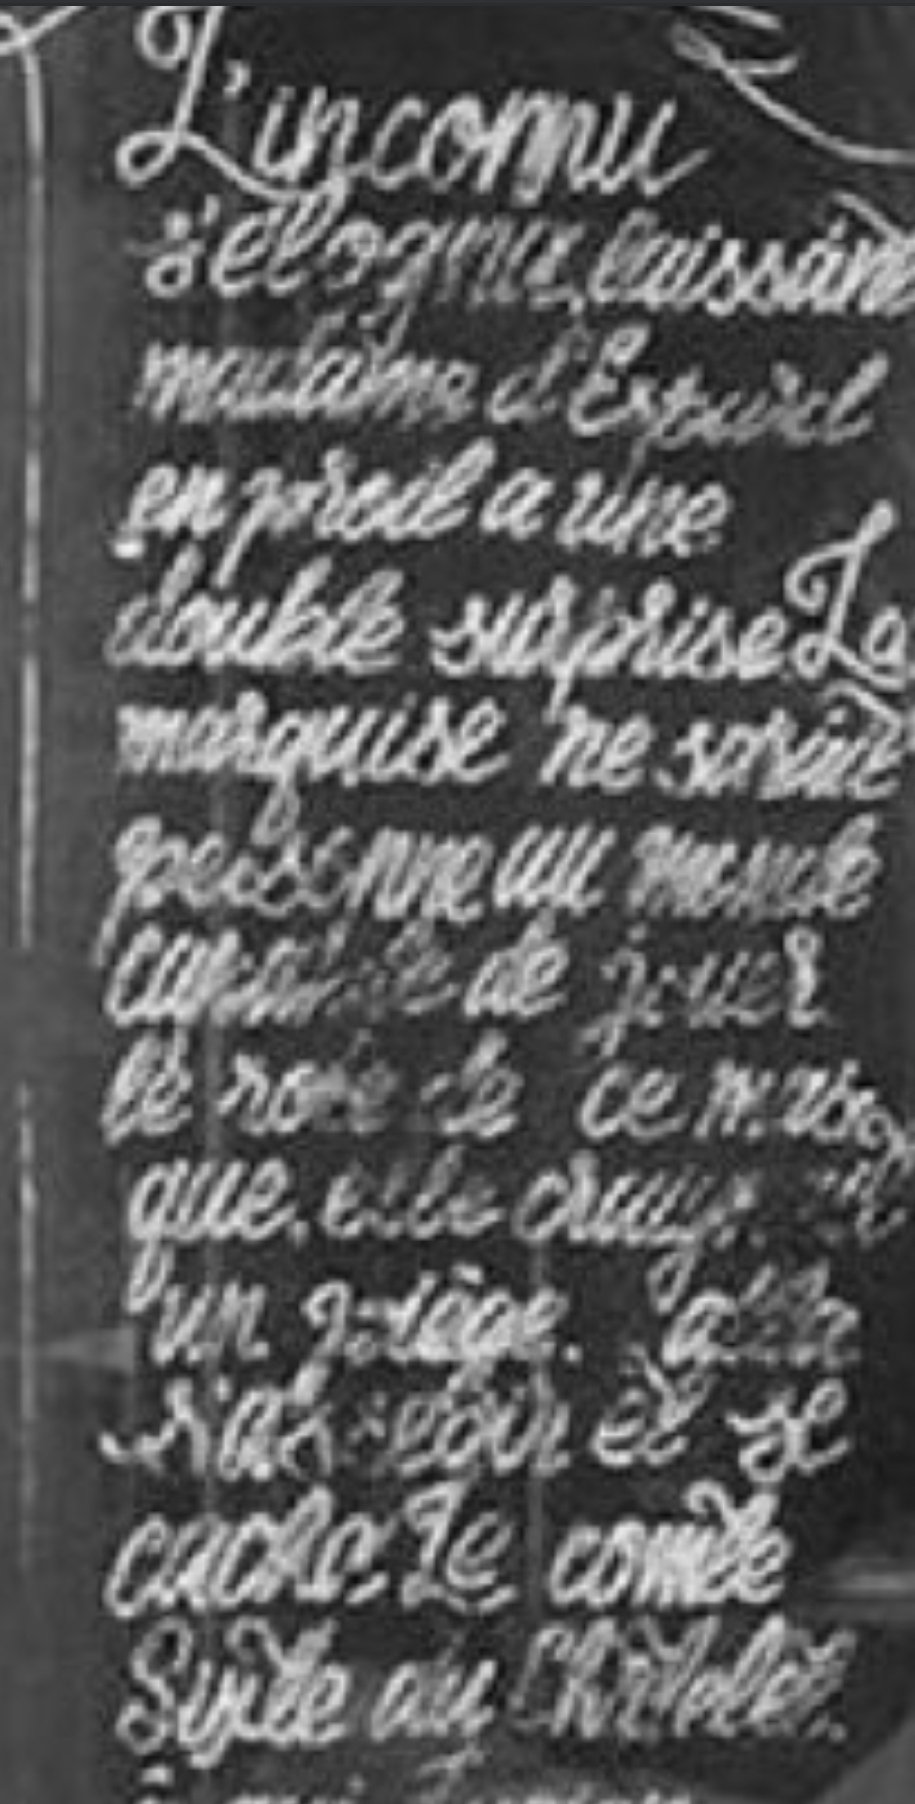 L'inconnu
s'élogna, laissant
madame d'Espard
en proie a une
double surprise. La
marquise ne savait
personne au monde
capable de jouer
le role de ce
que. elle
un piège. alla
s'asseoir et se
cacha. Le comte
Sixte du Châtelet.